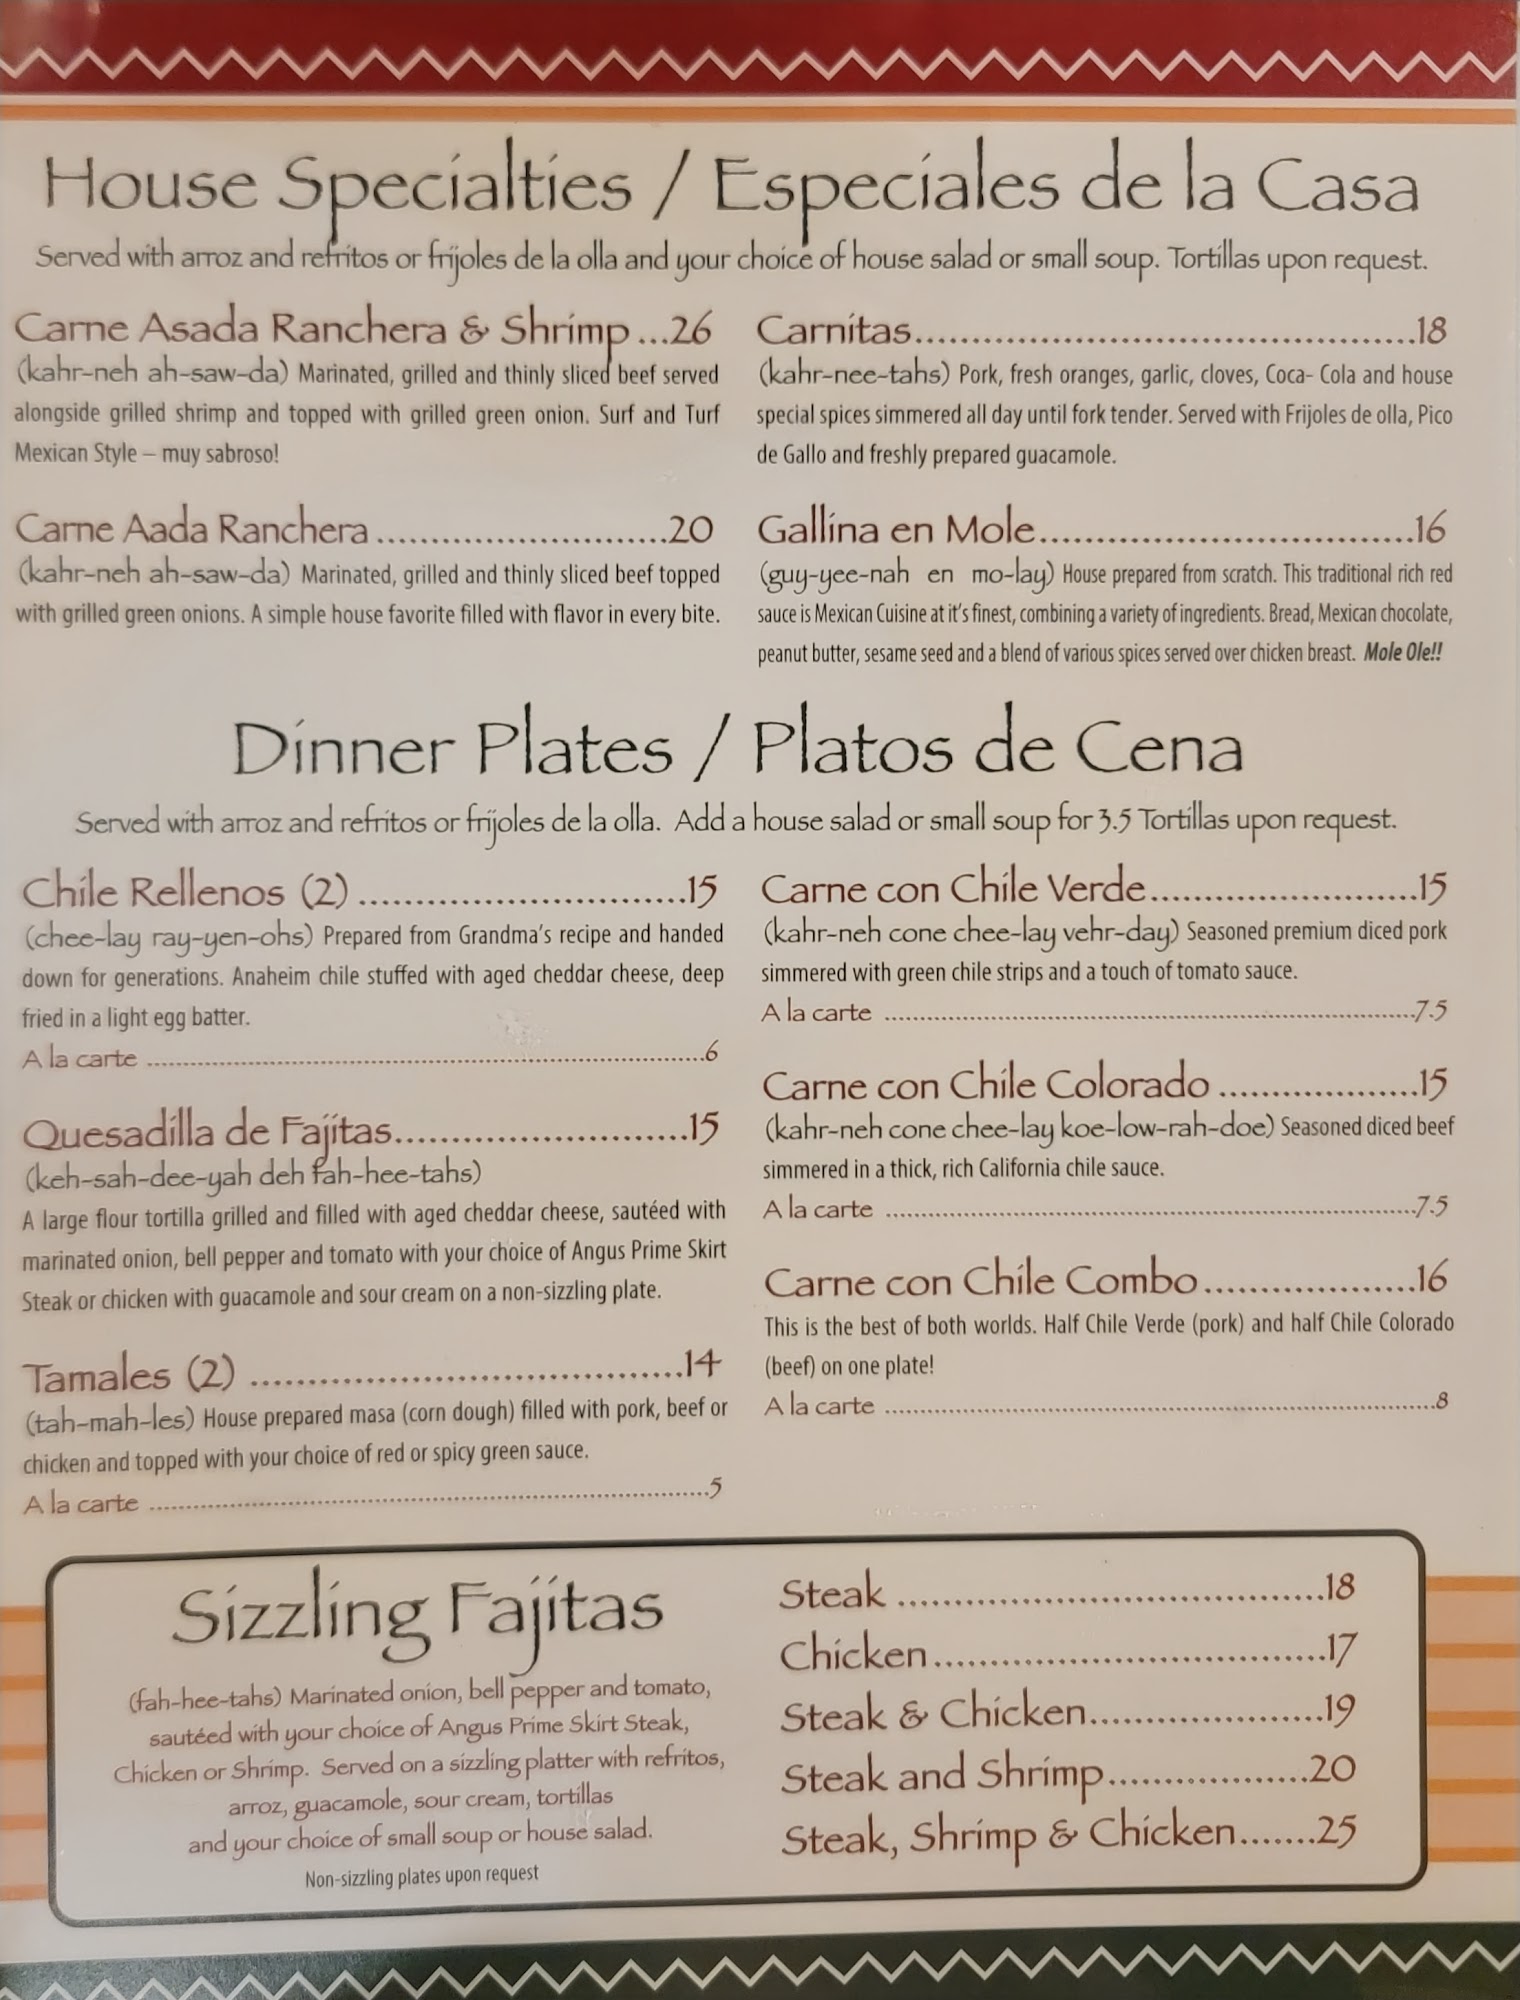 House Specialties / Especiales de la Casa
Served with arroz and refritos or frijoles de la olla and your choice of house salad or small soup. Tortillas upon request.
Carne Asada Ranchera & Shrimp ...26
(kahr-neh ah-saw-da) Marinated, grilled and thinly sliced beef served
alongside grilled shrimp and topped with grilled green onion. Surf and Turf
Mexican Style – muy sabroso!
Carne Aada Ranchera ............................20
(kahr-neh ah-saw-da) Marinated, grilled and thinly sliced beef topped
with grilled green onions. A simple house favorite filled with flavor in every bite.
Carnitas............................................18
(kahr-nee-tahs) Pork, fresh oranges, garlic, cloves, Coca- Cola and house
special spices simmered all day until fork tender. Served with Frijoles de olla, Pico
de Gallo and freshly prepared guacamole.
Gallina en Mole.................................16
(guy-yee-nah en mo-lay) House prepared from scratch. This traditional rich red
sauce is Mexican Cuisine at it's finest, combining a variety of ingredients. Bread, Mexican chocolate,
peanut butter, sesame seed and a blend of various spices served over chicken breast. Mole Ole!!
Dinner Plates / Platos de Cena
Served with arroz and refritos or frijoles de la olla. Add a house salad or small soup for 3.5 Tortillas upon request.
Chile Rellenos (2) .............................15
(chee-lay ray-yen-ohs) Prepared from Grandma's recipe and handed
down for generations. Anaheim chile stuffed with aged cheddar cheese, deep
fried in a light egg batter.
A la carte ............................................................6
Quesadilla de Fajitas..........................15
(keh-sah-dee-yah deh fah-hee-tahs)
A large flour tortilla grilled and filled with aged cheddar cheese, sautéed with
marinated onion, bell pepper and tomato with your choice of Angus Prime Skirt
Steak or chicken with guacamole and sour cream on a non-sizzling plate.
Tamales (2) ......................................14
(tah-mah-les) House prepared masa (corn dough) filled with pork, beef or
chicken and topped with your choice of red or spicy green sauce.
A la carte ............................................................5
Carne con Chile Verde........................15
(kahr-neh cone chee-lay vehr-day) Seasoned premium diced pork
simmered with green chile strips and a touch of tomato sauce.
A la carte ............................................................7.5
Carne con Chile Colorado ..................15
(kahr-neh cone chee-lay koe-low-rah-doe) Seasoned diced beef
simmered in a thick, rich California chile sauce.
A la carte ............................................................7.5
Carne con Chile Combo...................16
This is the best of both worlds. Half Chile Verde (pork) and half Chile Colorado
(beef) on one plate!
A la carte ............................................................8
Sizzling Fajitas
(fah-hee-tahs) Marinated onion, bell pepper and tomato,
sautéed with your choice of Angus Prime Skirt Steak,
Chicken or Shrimp. Served on a sizzling platter with refritos,
arroz, guacamole, sour cream, tortillas
and your choice of small soup or house salad.
Non-sizzling plates upon request
Steak ......................................18
Chicken...................................17
Steak & Chicken.....................19
Steak and Shrimp..................20
Steak, Shrimp & Chicken.......25